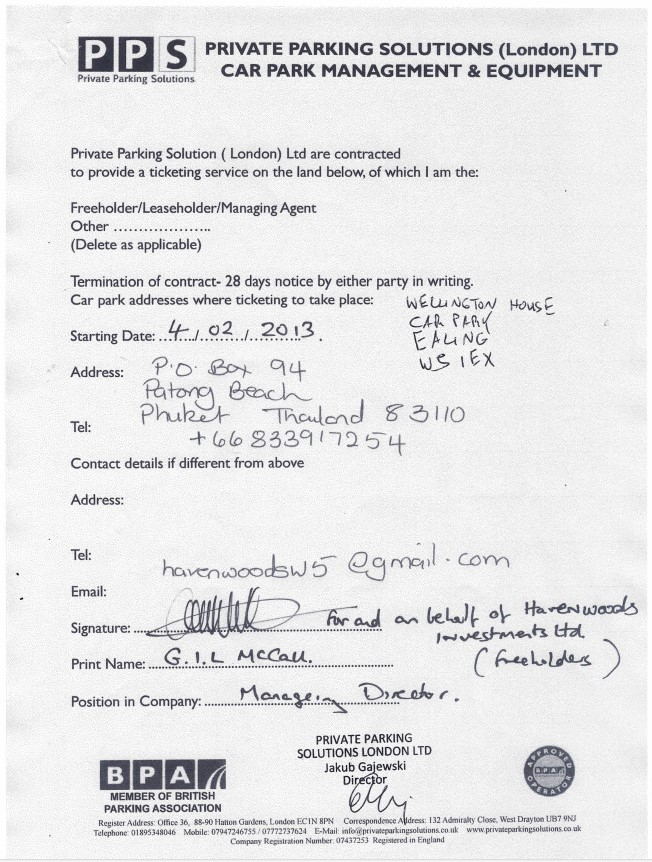 PPS
Private Parking Solutions
PRIVATE PARKING SOLUTIONS (London) LTD
CAR PARK MANAGEMENT & EQUIPMENT
Private Parking Solution ( London) Ltd are contracted
to provide a ticketing service on the land below, of which I am the:
Freeholder/Leaseholder/Managing Agent
Other ....................
(Delete as applicable)
Termination of contract- 28 days notice by either party in writing.
Car park addresses where ticketing to take place:
WELLINGTON HOUSE
CAR PARK
EALING
W5 1EX
Starting Date: 4 / 02 / 2013.
Address: P.O. Box 94
Patong Beach
Phuket Thailand 83110
Tel: +66 833917254
Contact details if different from above
Address:
Tel:
havenwoodsw5@gmail.com
Email:
Signature: For and on behalf of Havenwoods
Investments Ltd.
(freeholders)
Print Name: G.I.L McCall.
Position in Company: Managing Director.
PRIVATE PARKING
SOLUTIONS LONDON LTD
Jakub Gajewski
Director
BPA
MEMBER OF BRITISH
PARKING ASSOCIATION
APPROVED
BPA
OPERATOR
Register Address: Office 36, 88-90 Hatton Gardens, London EC1N 8PN Correspondence Address: 132 Admiralty Close, West Drayton UB7 9NJ
Telephone: 01895348046 Mobile: 07947246755 / 07772737624 E-Mail: info@privateparkingsolutions.co.uk www.privateparkingsolutions.co.uk
Company Registration Number: 07437253 Registered in England